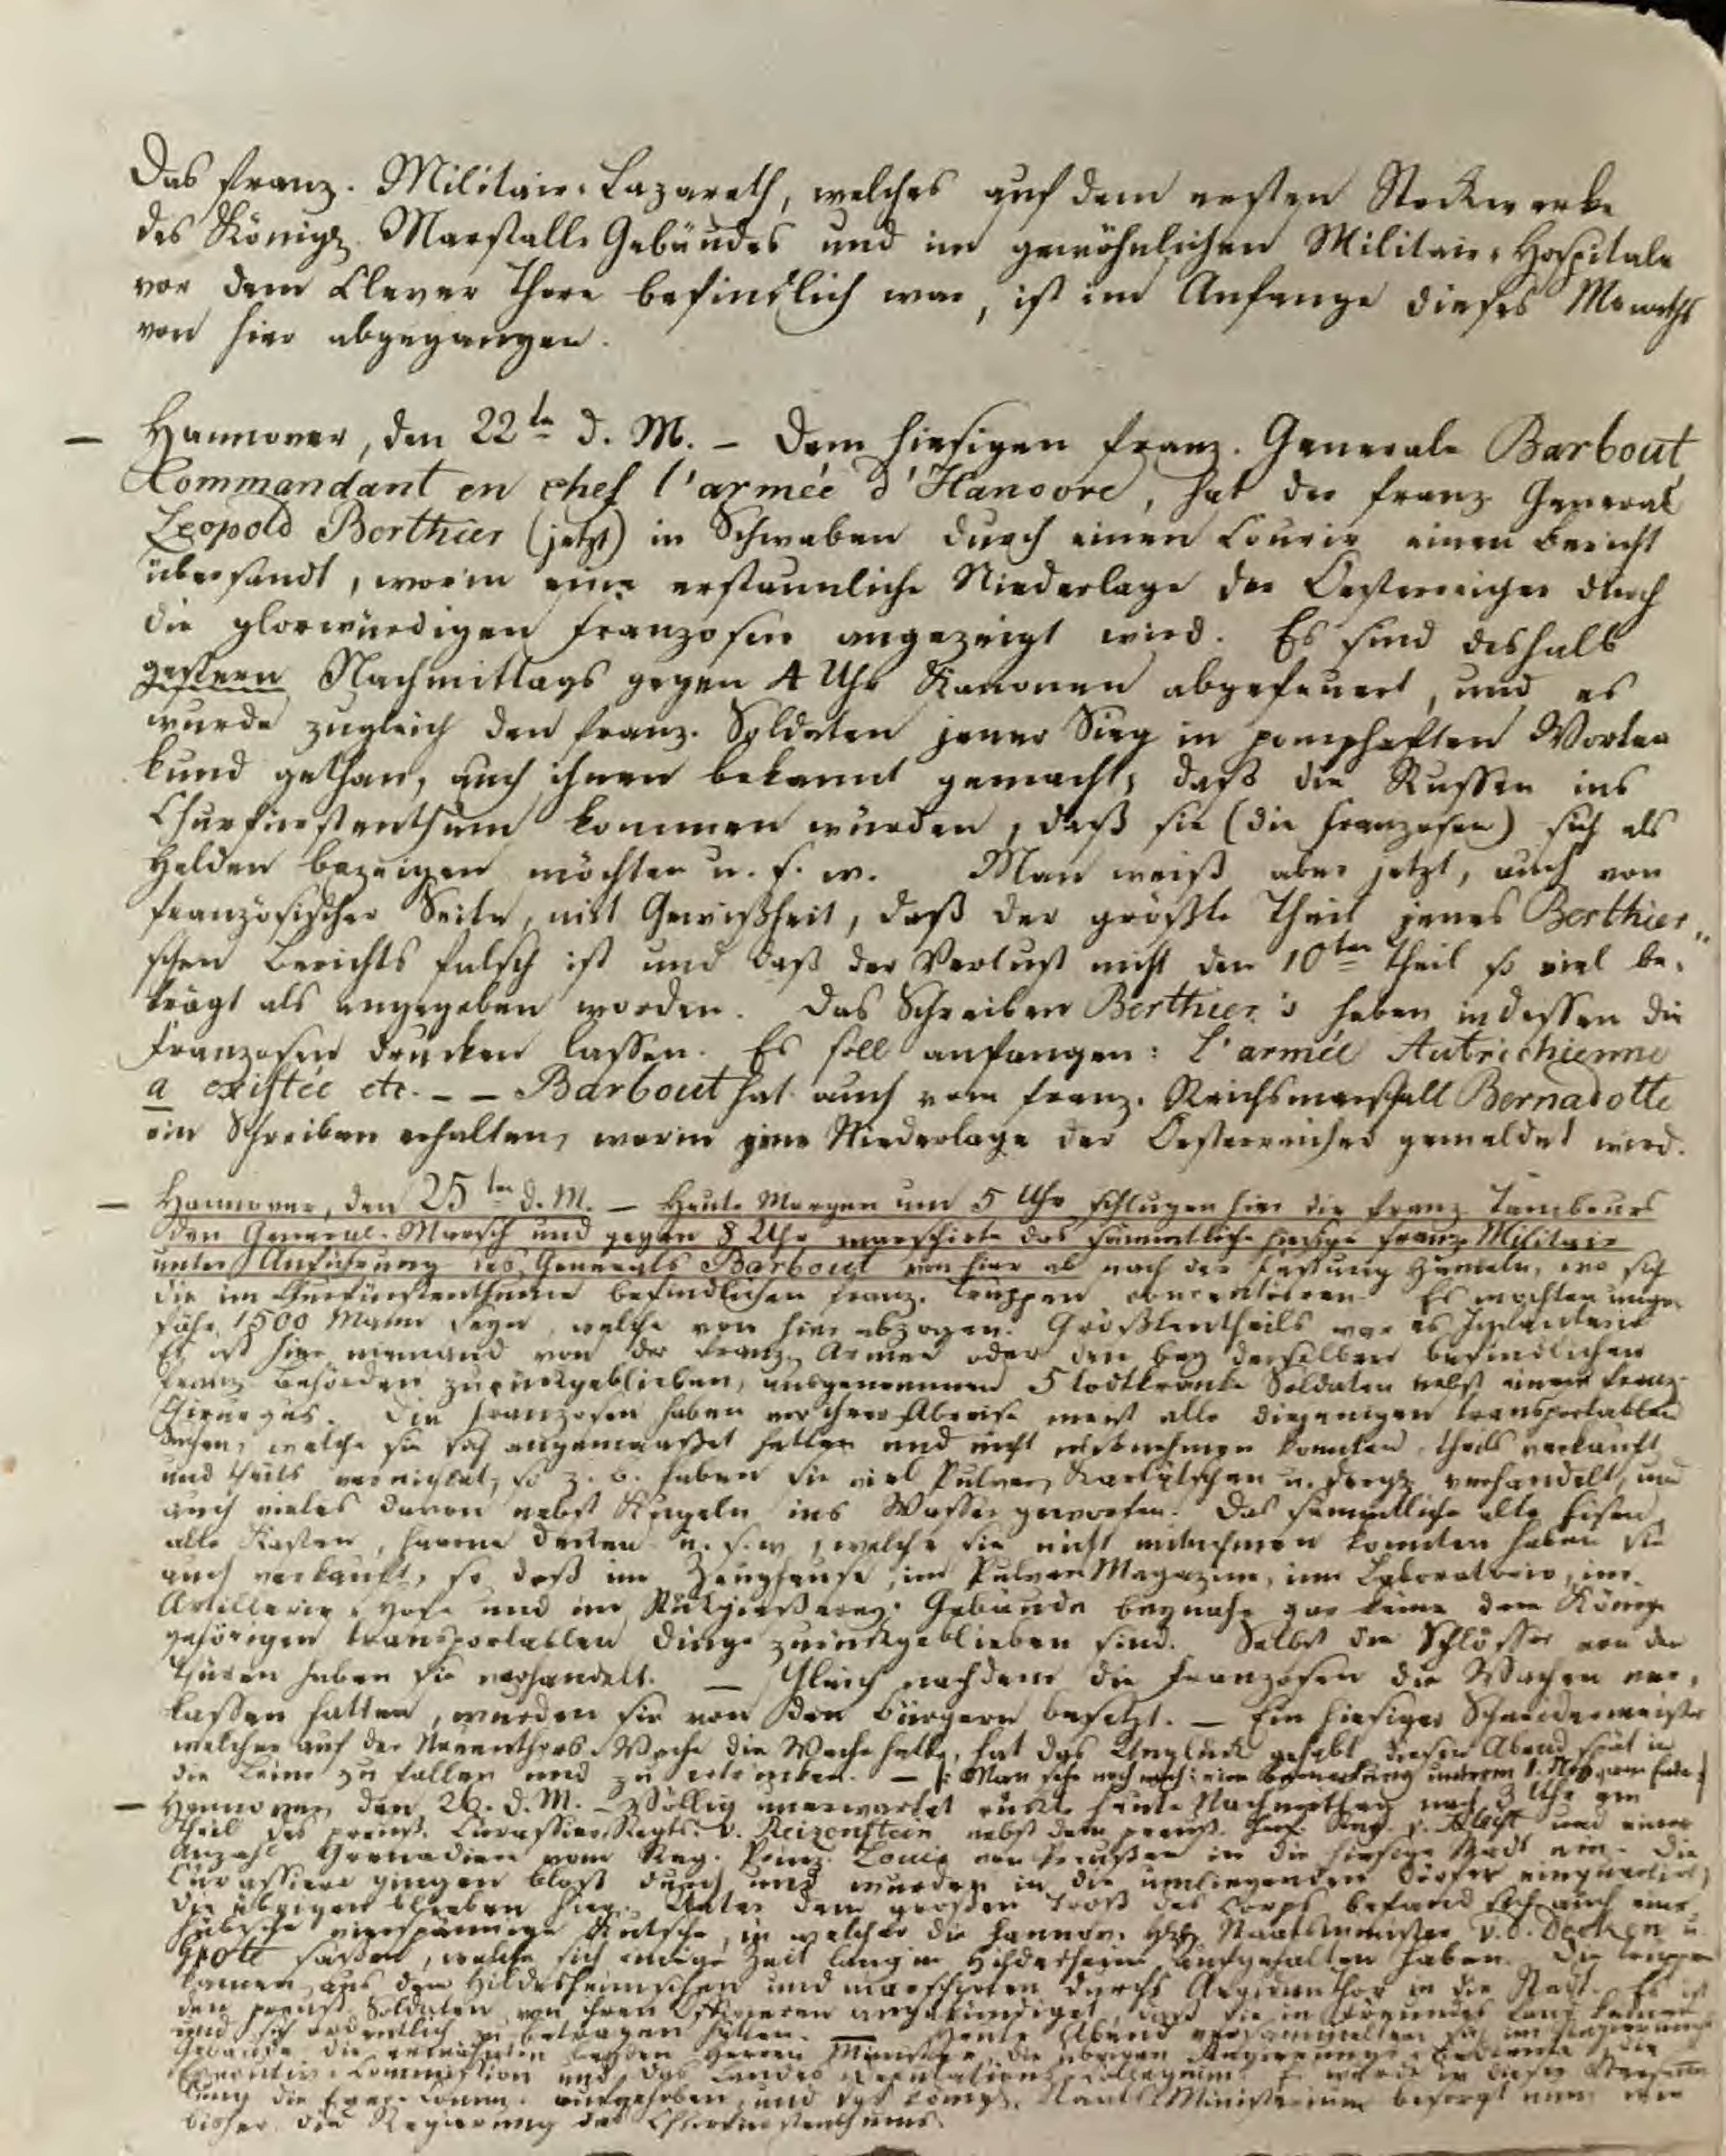 Das franz. Militair-Lazareth, welches auf dem ersten Stockwerke
des Königl. Marstalls Gebäudes und im gewöhnlichen Militair-Hospitale
vor dem Clever Thore befindlich war, ist im Anfange dieses Monaths
von hier abgegangen.
— Hannover, den 22ten d. M. — Dem hiesigen franz. Generale Barbout
Kommandant en chef l'armée d'Hanovre, hat der franz. General
Leopold Berthier (jetzt) in Schwaben durch einen Courir einen Bericht
übersandt, worin eine erstaunliche Niederlage der Oesterreicher durch
die glorwürdigen Franzosen angezeigt wird. Es sind deshalb
gestern Nachmittags gegen 4 Uhr Kanonen abgefeuert, und es
wurde zugleich den franz. Soldaten jener Sieg in pomphaften Worten
kund gethan, auch ihnen bekannt gemacht, daß die Russen ins
Churfürstenthum kommen würden, daß sie (die Franzosen) sich als
Helden bezeigen möchten u. s. w. Man weiß aber jetzt, auch von
französischer Seite, mit Gewißheit, daß der größte Theil jenes Berthier„
schen Berichts falsch ist und daß der Verlust nicht den 10ten Theil so viel be-
trägt als angegeben worden. Das Schreiben Berthier's haben indessen die
Franzosen drucken lassen. Es soll anfangen: L'armée Autrichienne
a existée etc. — — Barbout hat auch vom franz. Reichsmarschall Bernadotte
ein Schreiben erhalten, worin jene Niederlage der Oesterreicher gemeldet wird.
— Hannover, den 25ten d. M. — Heute Morgen um 5 Uhr schlugen hier die franz. Tambours
den General-Marsch und gegen 8 Uhr marschirte das sämmtliche hiesige franz. Militair
unter Anführung des Generals Barbout von hier ab nach der Festung Hameln, wo sich
die im Churfürstenthume befindlichen franz. Truppen concentriren. Es mochten unge-
fähr 1500 Mann seyn, welche von hier abzogen. Größtentheils war es Infanterie
Es ist hier niemand von der franz. Armee oder den bey derselben befindlichen
franz. Behörden zurückgeblieben, ausgenommen 5 todtkranke Soldaten nebst einem franz.
Chirurgus. Die Franzosen haben vor ihrer Abreise meist alle diejenigen transportablen
Sachen, welche sie sich angemaaßet hatten und nicht mitnehmen konnten, theils verkauft
und theils vernichtet, so z. B. haben sie viel Pulver, Kartätschen u. dergl. verhandelt, und
auch vieles davon nebst Kugeln ins Wasser geworfen. Das sämmtliche alte Eisen,
alte Kasten, u. s. w., welche sie nicht mitnehmen konnten haben sie
auch verkauft, so daß im Zeughause, im Pulver Magazine, im Laboratorio, im
Artillerie-Hofe und im Gebäude beynahe gar keine dem König
gehörigen transportablen Dinge zurückgeblieben sind. Selbst die Schlösser von den
Thüren haben sie verhandelt. — Gleich nachdem die Franzosen die Wachen ver-
lassen hatten, wurden sie von den Bürgern besetzt. — Ein hiesiger Schneidermeister
welcher auf der Wache die Wache hatte, hat das Unglück gehabt diesen Abend spät in
die Leine zu fallen und zu ertrinken. — (: Man sehe noch eine Bemerkung unterm 1. Nov. am Ende :)
— Hannover, den 26. d. M. — Völlig unerwartet rückte heute Nachmittag nach 3 Uhr ein
Theil des preuß. Cürassier-Regts. v. Reizenstein nebst dem preuß. und einer
Anzahl Grenadiere vom Reg. Prinz Louis von Preußen in die hiesige Stadt ein. Die
Cürassiere gingen bloß durch und wurden in die umliegenden Dörfer einquartirt,
die übrigen blieben hier. Unter dem großen Troß des Corps befand sich auch eine
hübsche vierspännige Kutsche, in welcher die hannov. Staatsminister v. d. Decken u.
Grote saßen, welche sich einige Zeit lang in Hildesheim aufgehalten haben. Die Truppen
kamen aus dem Hildesheimschen und marschirten durchs Aegidienthor in die Stadt. Es ist
den preuß. Soldaten von ihren Officieren angekündiget, daß sie in Freundes Land kämen
und sich ordentlich zu betragen hätten. — Heute Abend versammelten sich im Regierungs
Gebäude die erwähnten beyden Herren Minister, die übrigen die
Executiv-Commission und das Landes Deputations-Collegium. Es wurde in dieser Versamm
lung die Exec. Comm. aufgehoben, und das königl. Staats Ministerium besorgt nun wie
bisher die Regierung des Churfürstenthums.